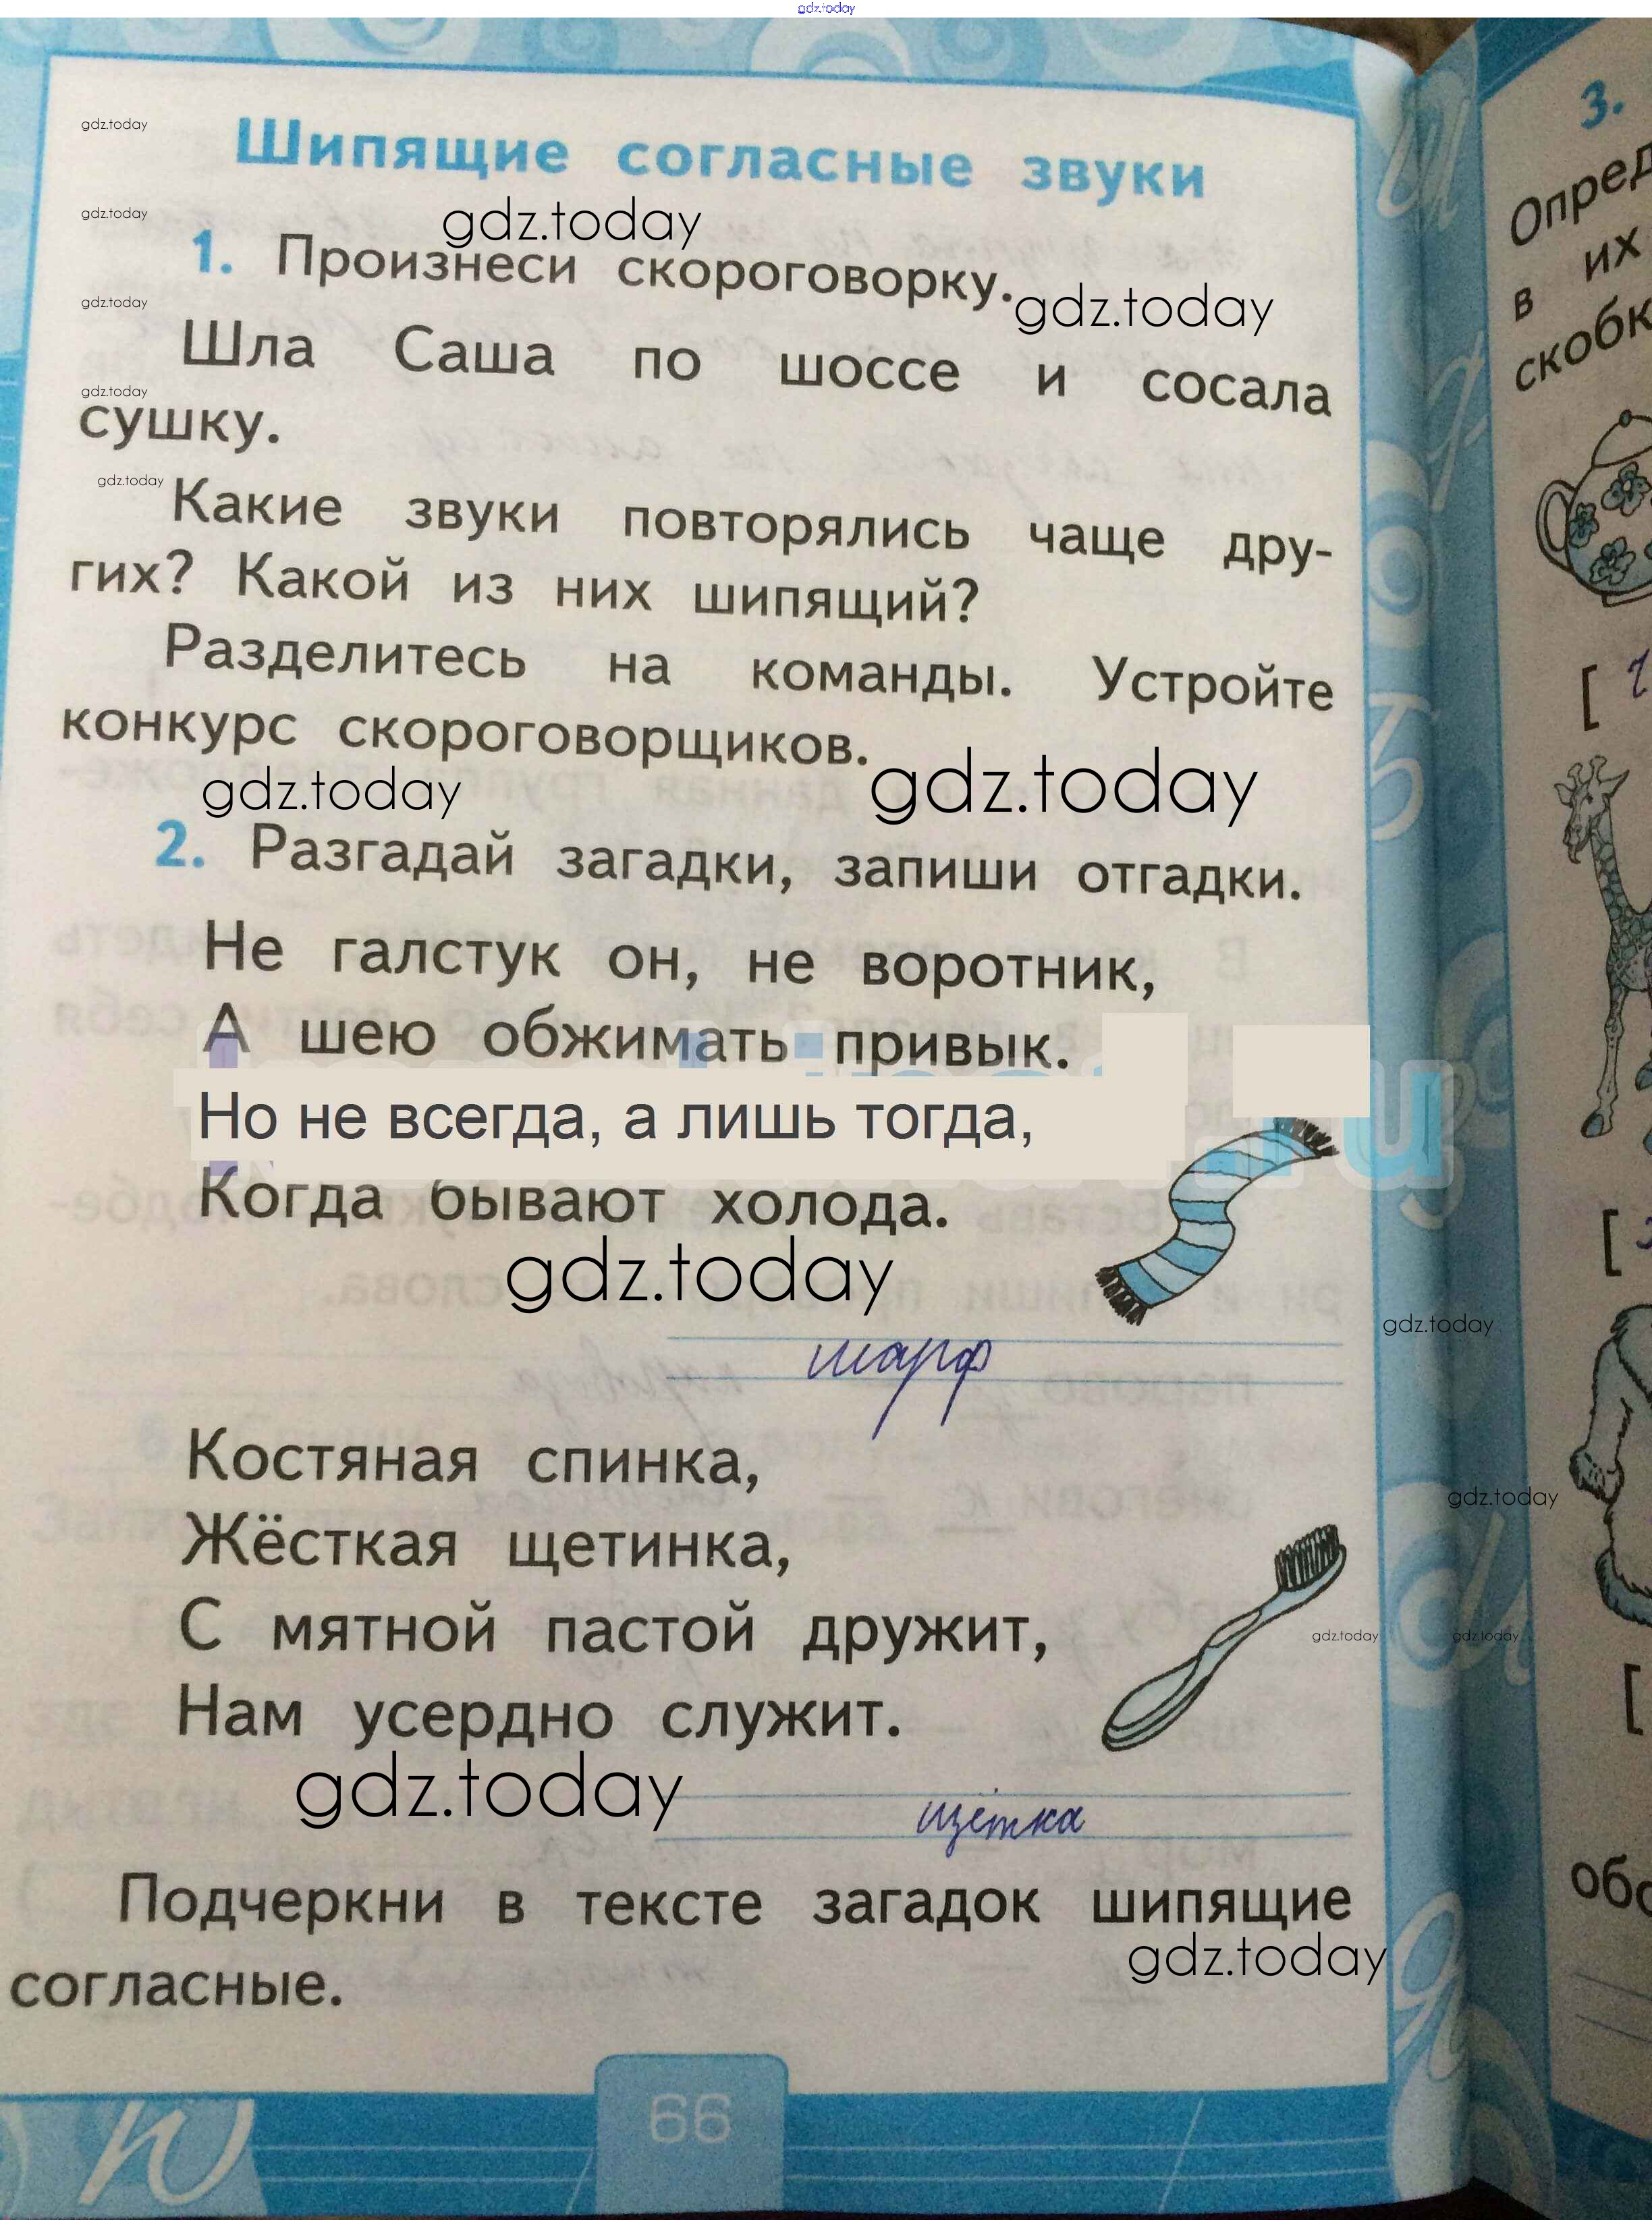 gdz.today
Шипящие согласные звуки
gdz.today
gdz.today
gdz.today
1. Произнеси скороговорку.
gdz.today
gdz.today
Шла Саша по шоссе и сосала
gdz.today
сушку.
gdz.today
Какие звуки повторялись чаще дру-
гих? Какой из них шипящий?
Разделитесь на команды. Устройте
конкурс скороговорщиков.
gdz.today
gdz.today
2. Разгадай загадки, запиши отгадки.
Не галстук он, не воротник,
А шею обжимать привык.
Но не всегда, а лишь тогда,
Когда бывают холода.
gdz.today
gdz.today
шарф
Костяная спинка,
gdz.today
Жёсткая щетинка,
С мятной пастой дружит,
gdz.today
gdz.today
Нам усердно служит.
gdz.today
щётка
Подчеркни в тексте загадок шипящие
gdz.today
согласные.
66
3.
в их